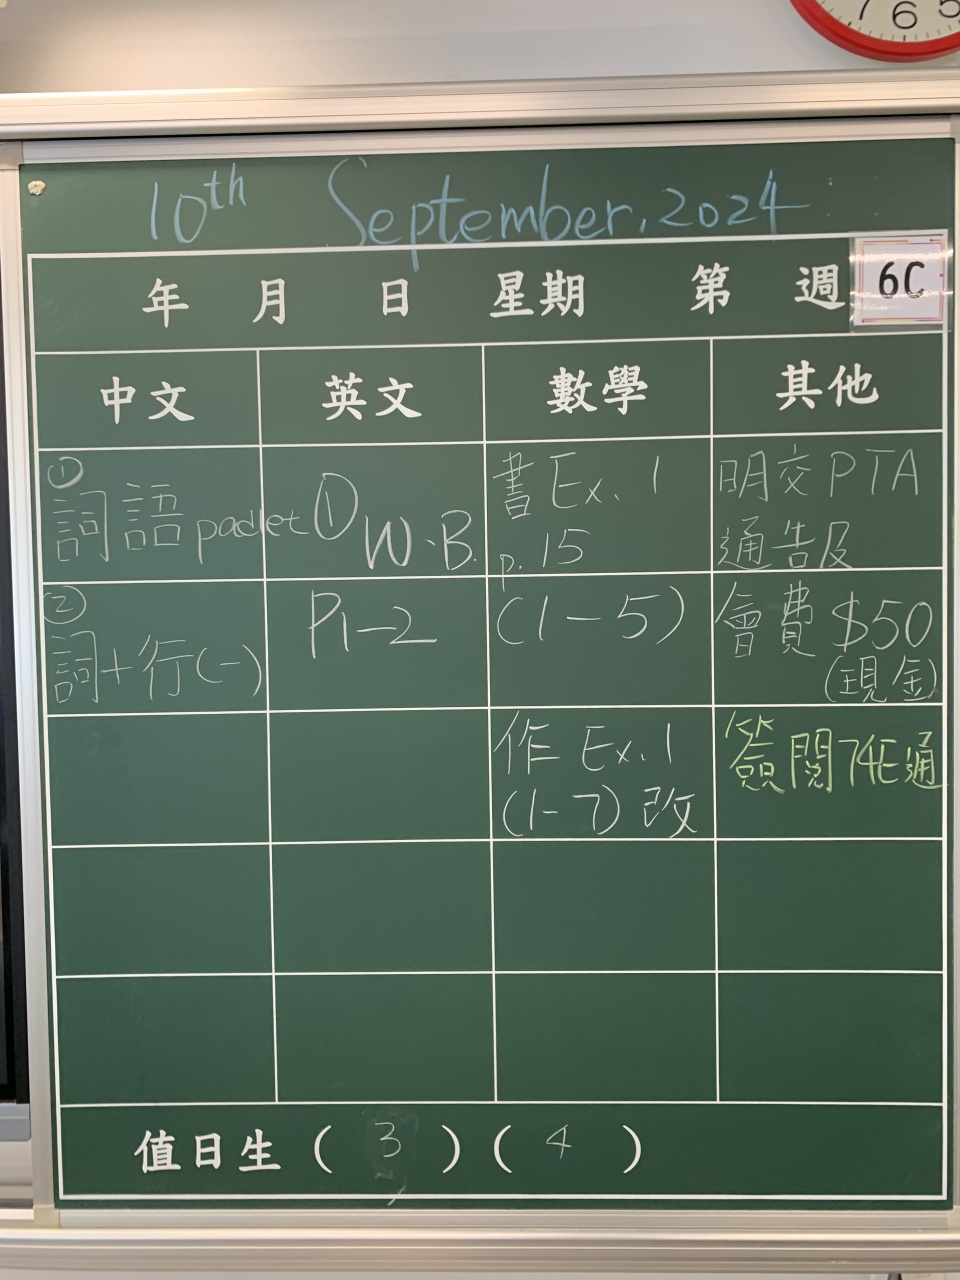 7 6 5
10th September, 2024
年 月 日 星期 第 週
6C
中文 英文 數學 其他
①
詞語 padlet
②
詞+行(一)
① W.B.
P1-2
書 Ex. 1
p. 15
(1-5)
作 Ex. 1
(1-7) 改
明交 PTA
通告及
會費 $50
(現金)
簽閱 74E通
值日生 ( 3 ) ( 4 )